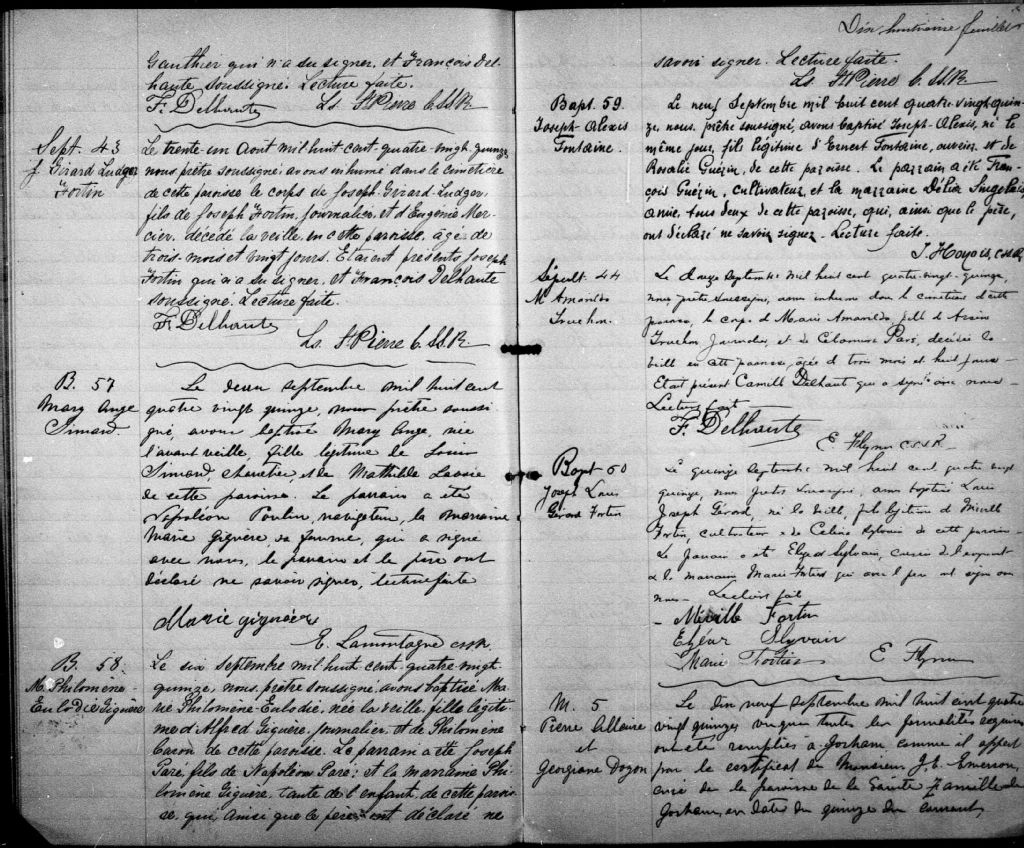 Gauthier qui n'a su signer, et François Del-
haute soussigné. Lecture faite.
F. Delhaute Ls St Pierre C.SS.R
Sept. 43
J. Girard Ludger
Fortin
Le trente-un Aout mil huit cent quatre-vingt quinze
nous prêtre soussigné avons inhumé dans le cimetière
de cette paroisse le corps de Joseph Girard-Ludger,
fils de Joseph Fortin, journalier, et d'Eugénie Mer-
cier, décédé la veille, en cette paroisse, âgé de
trois mois et vingt jours. Etaient présents Joseph
Fortin qui n'a su signer, et François Delhaute
soussigné. Lecture faite.
F. Delhaute
Ls St Pierre C.SS.R.
B. 57
Mary Ange
Simard.
Le deux septembre mil huit cent
quatre vingt quinze, nous prêtre soussi
gné, avons baptisé Mary Ange, née
l'avant veille, fille légitime de Louis
Simard, charretier, et de Mathilde Lavoie
de cette paroisse. Le parrain a été
Napoléon Poulin, navigateur, la marraine
Marie Giguère sa femme, qui a signé
avec nous, le parrain et le père ont
déclaré ne savoir signer, lecture faite
Marie Giguère
E. Lamontagne cssr.
B. 58.
M. Philomène-
Eulodie Giguère
Le six septembre mil huit cent quatre-vingt
quinze, nous, prêtre soussigné, avons baptisé Ma-
rie Philomène-Eulodie, née la veille, fille légiti-
me d'Alfred Giguère, journalier, et de Philomène
Caron de cette paroisse. Le parrain a été Joseph
Paré, fils de Napoléon Paré; et la marraine Phi-
lomène Giguère, tante de l'enfant, de cette parois-
se, qui, ainsi que le père, ont déclaré ne
Dix huitième feuillet
savoir signer. Lecture faite.
Ls St Pierre C.SS.R
Bapt. 59.
Joseph-Alexis
Fontaine.
Le neuf Septembre mil huit cent quatre-vingt-quin-
ze, nous, prêtre soussigné, avons baptisé Joseph-Alexis, né le
même jour, fils légitime d'Ernest Fontaine, ouvrier et de
Rosalie Guérin, de cette paroisse. Le parrain a été Fran-
çois Guérin, cultivateur, et la marraine Délia Singelais,
amie, tous deux de cette paroisse, qui, ainsi que le père,
ont déclaré ne savoir signer. Lecture faite.
J. Hoyois, C.SS.R.
Sépult. 44
M. Amarilda
Truchon.
Le douze Septembre mil huit cent quatre-vingt-quinze,
nous prêtre soussigné, avons inhumé dans le cimetière d'cette
paroisse, le corps d Marie Amarilda, fille d
Truchon Journalier, et de Paré, décédée la
veille en cette paroisse, âgée d trois mois et huit jours
Etait présent Camille Delhaut qui a signé avec nous
Lecture fait
F. Delhaute
E Flynn CSSR
Bapt 60
Joseph Louis
Gérard Fortin
Le quinze Septembre mil huit cent quatre vingt
quinze, nous prêtre soussigné, avons baptisé Louis
Joseph Gérard, né la veille, fils légitime d Miville
Fortin, cultivateur & de Celina Sylvain de cette paroisse
Le parrain a été Elzéar Sylvain, cousin d l'enfant
& la marraine Marie Fortier qui avec l père ont signé avec
nous Lecture fait
Miville Fortin
Elzéar Slyvain
Marie Fortier E Flynn
M. 5
Pierre Allaire
et
Georgiane Doyon
Le dix neuf septembre mil huit cent quatre
vingt quinze vu que toutes les formalités requises
ont été remplies à Gorham, comme il appert
par le certificat de Monsieur J. E. Emerson,
curé de la paroisse de la Sainte Famille de
Gorham, en date du quinze du courant,